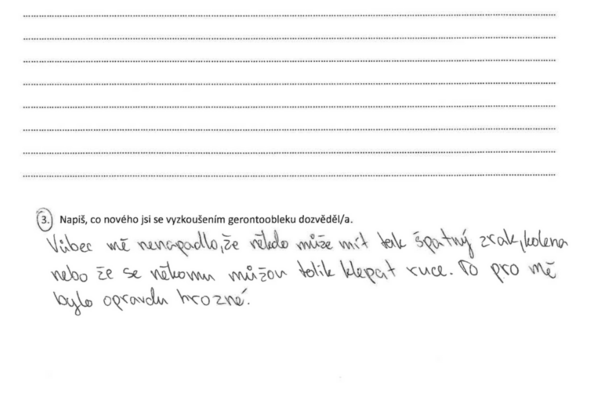 3. Napiš, co nového jsi se vyzkoušením gerontoobleku dozvěděl/a.
Vůbec mě nenapadlo, že někdo může mít tak špatný zrak, kolena
nebo že se někomu můžou tolik klepat ruce. To pro mě
bylo opravdu hrozné.